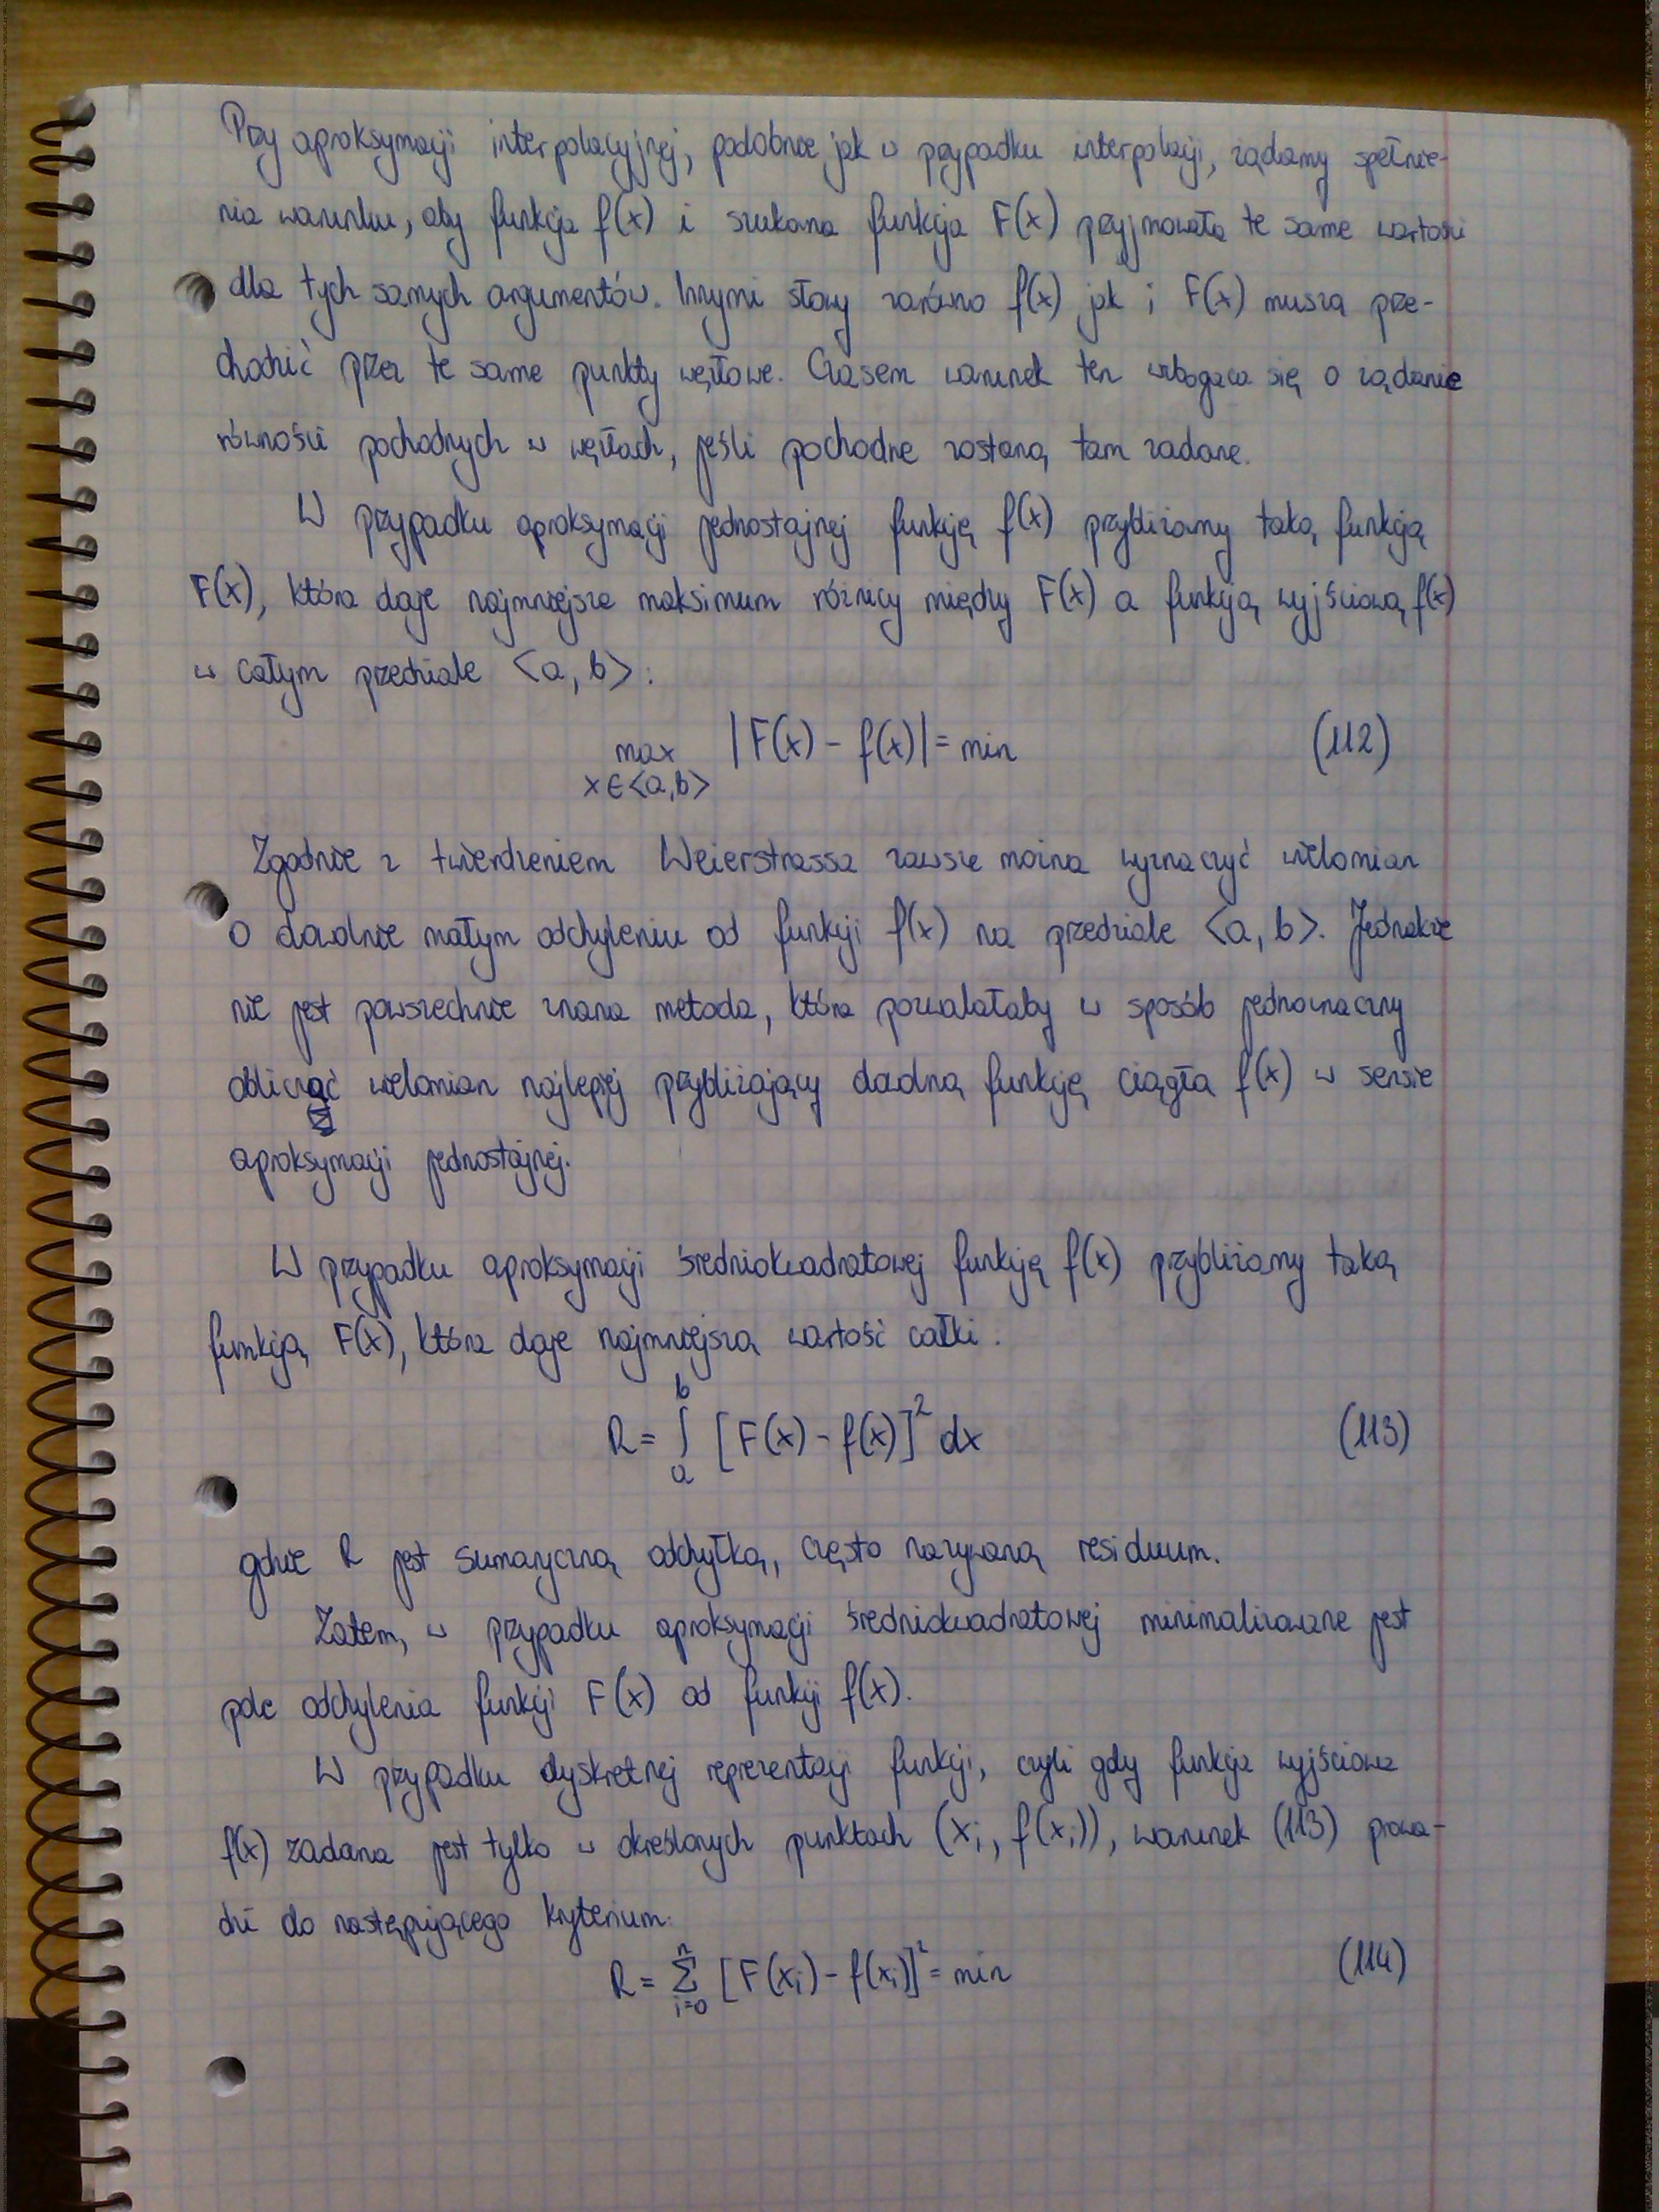 Przy aproksymacji interpolacyjnej, podobnie jak w przypadku interpolacji, żądamy spełnie-
nia warunku, aby funkcja f(x) i szukana funkcja F(x) przyjmowała te same wartości
dla tych samych argumentów. Innymi słowy zarówno f(x) jak i F(x) muszą prze-
chodzić przez te same punkty węzłowe. Czasem warunek ten wzbogaca się o żądanie
równości pochodnych w węzłach, jeśli pochodne zostaną tam zadane.
W przypadku aproksymacji jednostajnej funkcję f(x) przybliżamy taką funkcją
F(x), która daje najmniejsze maksimum różnicy między F(x) a funkcją wyjściową f(x)
w całym przedziale <a, b>:
max |F(x) - f(x)| = min (112)
x∈<a,b>
Zgodnie z twierdzeniem Weierstrassa zawsze można wyznaczyć wielomian
o dowolnie małym odchyleniu od funkcji f(x) na przedziale <a, b>. Jednakże
nie jest powszechnie znana metoda, która pozwalałaby w sposób jednoznaczny
obliczać wielomian najlepiej przybliżający daną funkcję ciągła f(x) w sensie
aproksymacji jednostajnej.
W przypadku aproksymacji średniokwadratowej funkcję f(x) przybliżamy taką
funkcją F(x), która daje najmniejszą wartość całki:
R = ∫ₐᵇ [F(x) - f(x)]² dx (113)
gdzie R jest sumaryczną odchyłką, często nazywaną residuum.
Zatem, w przypadku aproksymacji średniokwadratowej minimalizowane jest
pole odchylenia funkcji F(x) od funkcji f(x).
W przypadku dyskretnej reprezentacji funkcji, czyli gdy funkcja wyjściowa
f(x) zadana jest tylko w określonych punktach (xᵢ, f(xᵢ)), warunek (113) prowa-
dzi do następującego kryterium:
R = Σᵢ₌₀ⁿ [F(xᵢ) - f(xᵢ)]² = min (114)